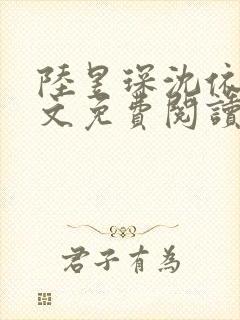 陸昱琛沈依
文免費閱讀
君子有為